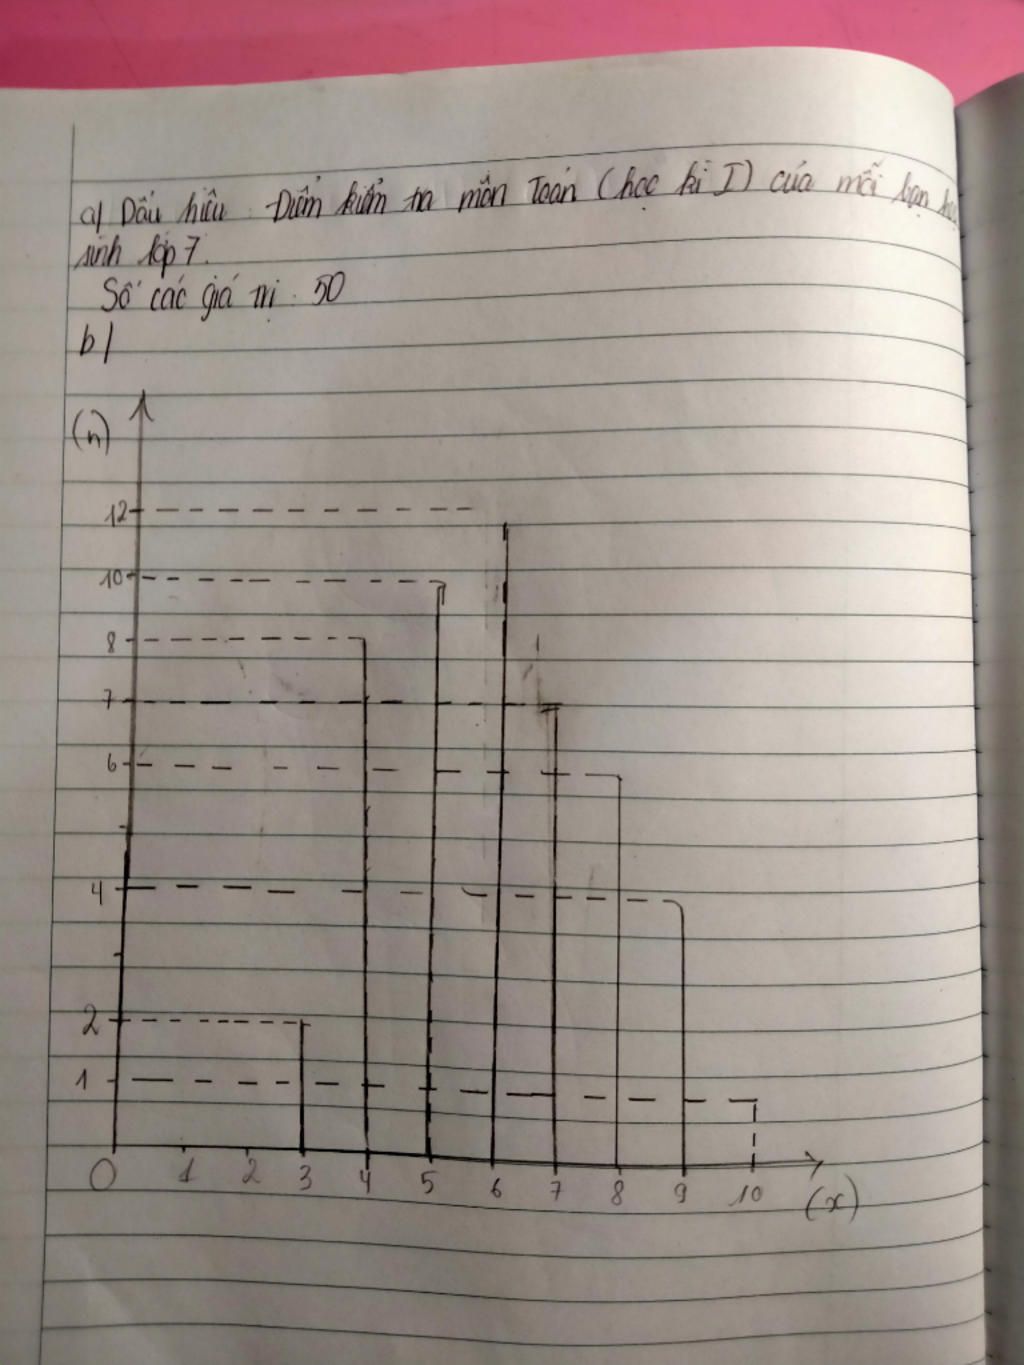 a/ Dấu hiệu : Điểm kiểm tra môn Toán (học kì I) của mỗi bạn học
sinh lớp 7.
Số các giá trị : 50
b/
(n)
12
10
8
7
6
4
2
1
O 1 2 3 4 5 6 7 8 9 10 (x)